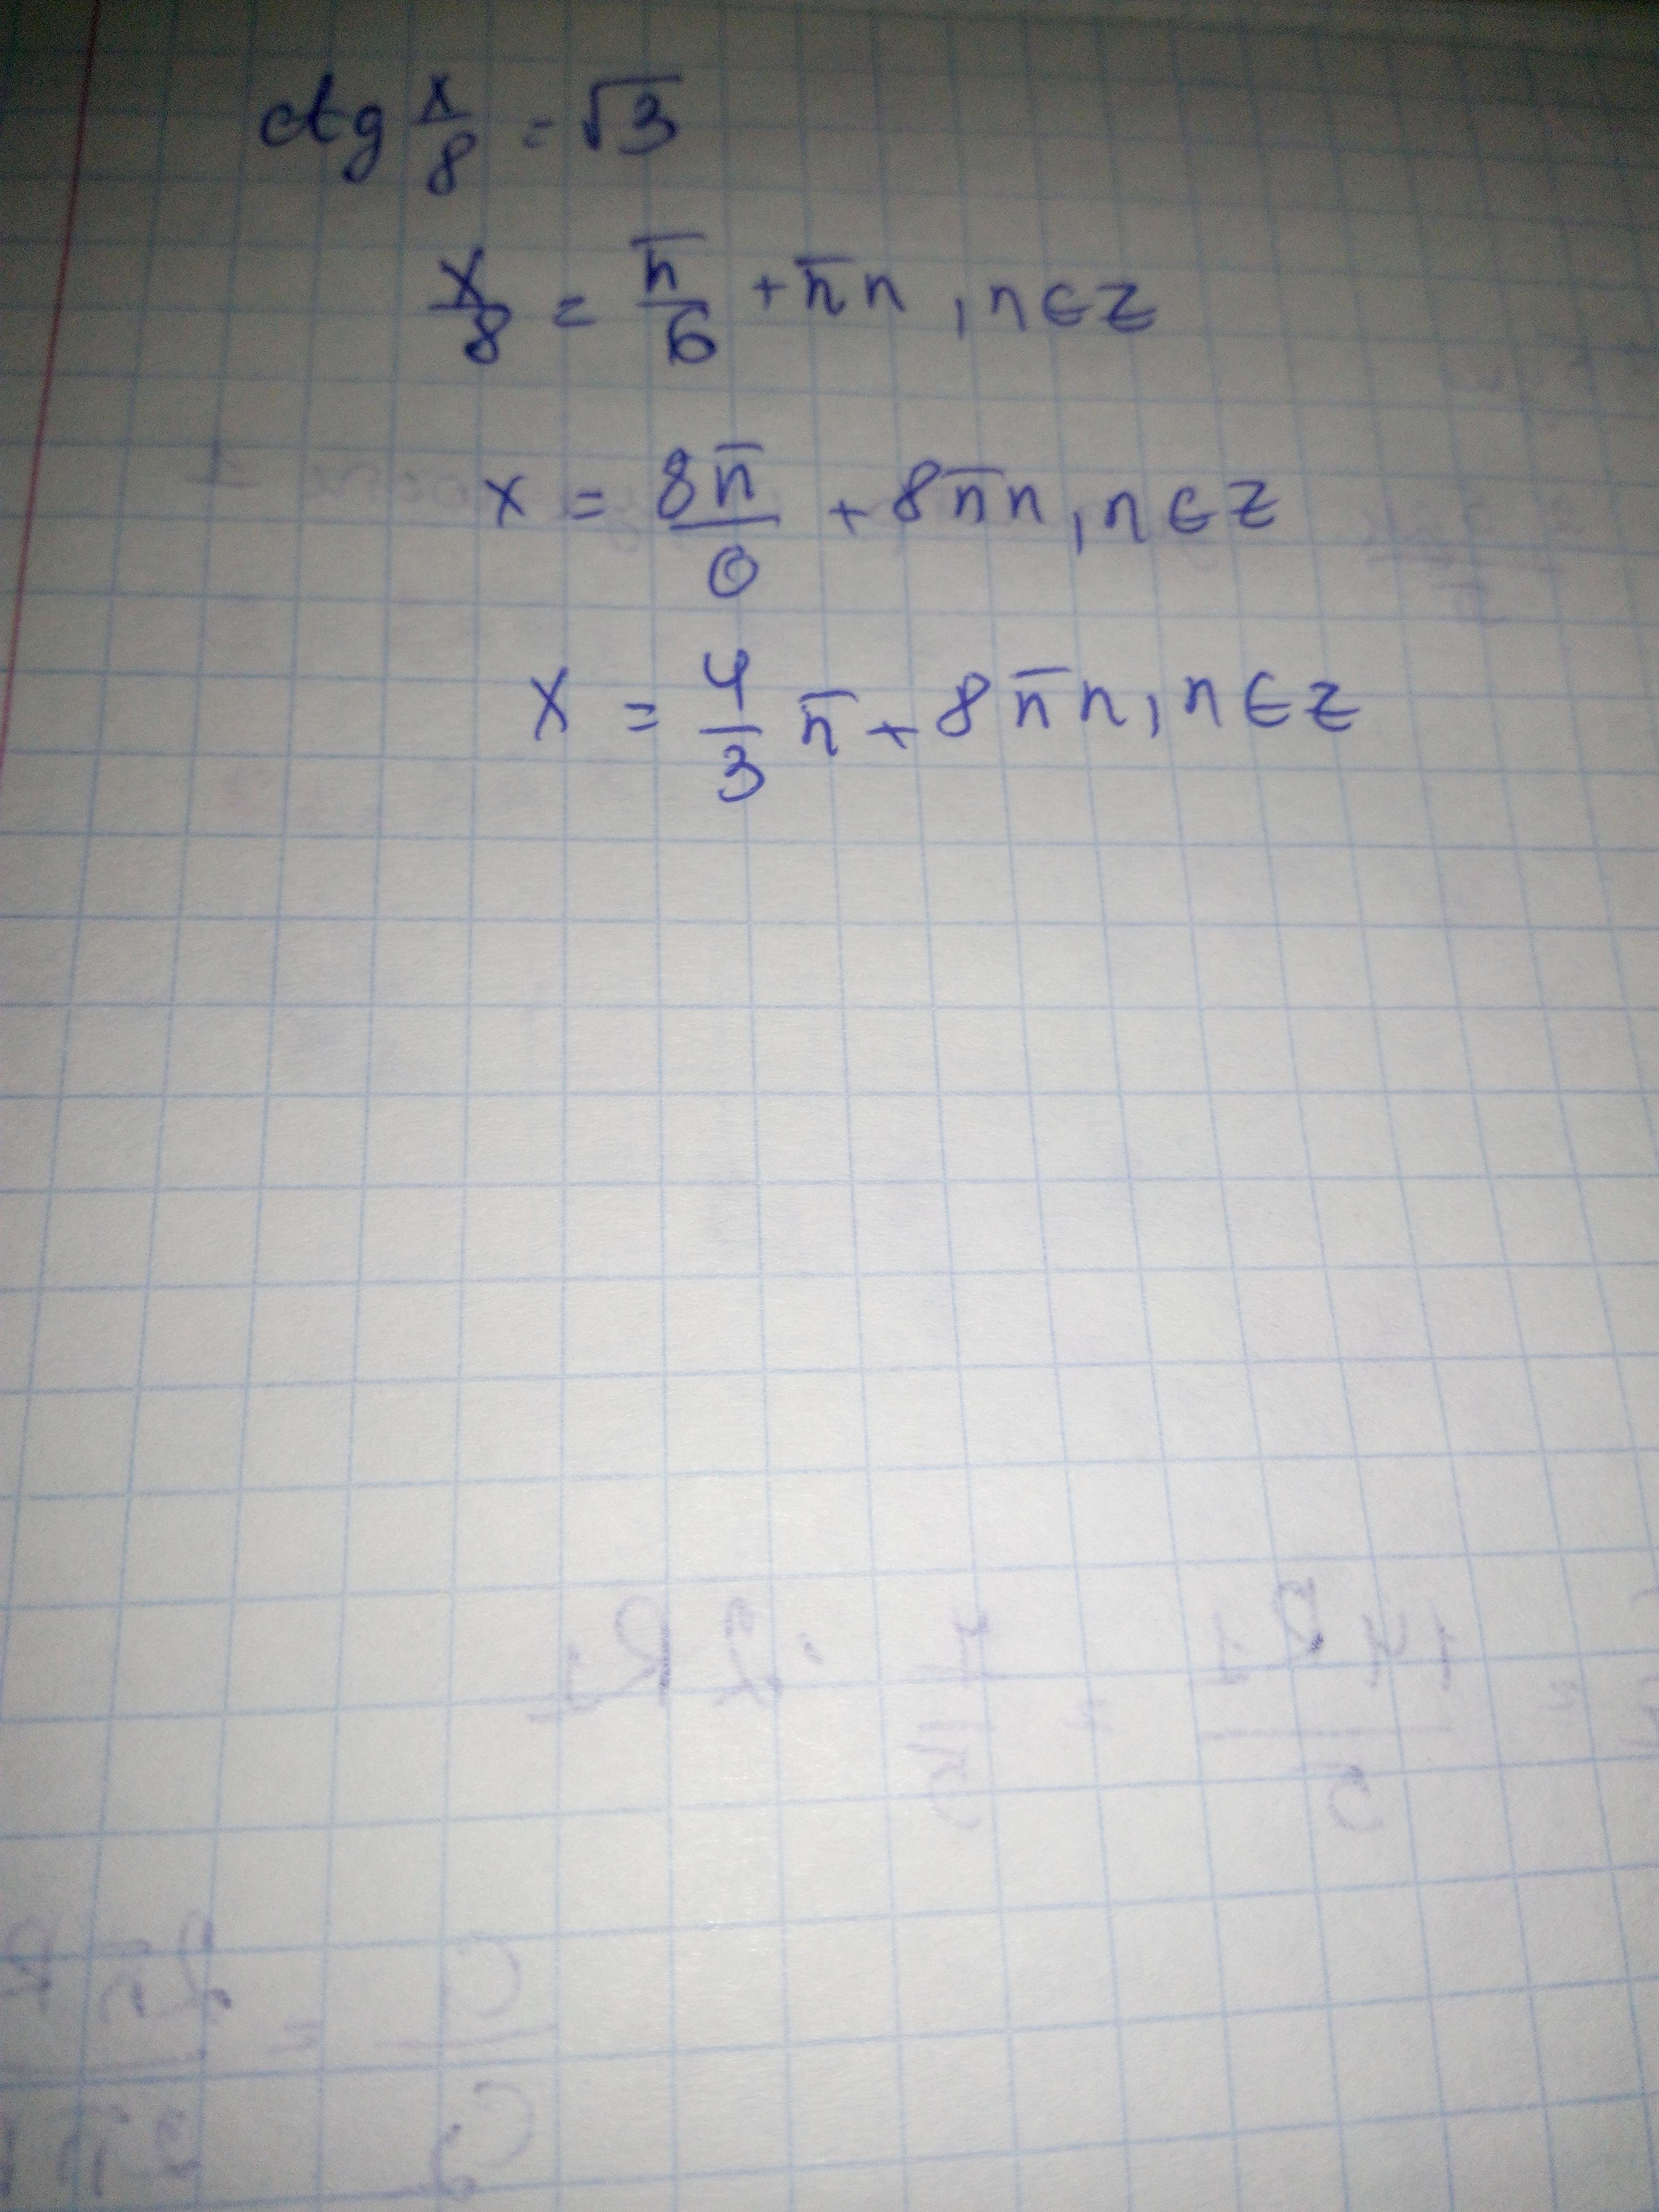 ctg x/8 = √3
x/8 = π/6 + πn, n ∈ Z
x = 8π/6 + 8πn, n ∈ Z
x = 4/3 π + 8πn, n ∈ Z